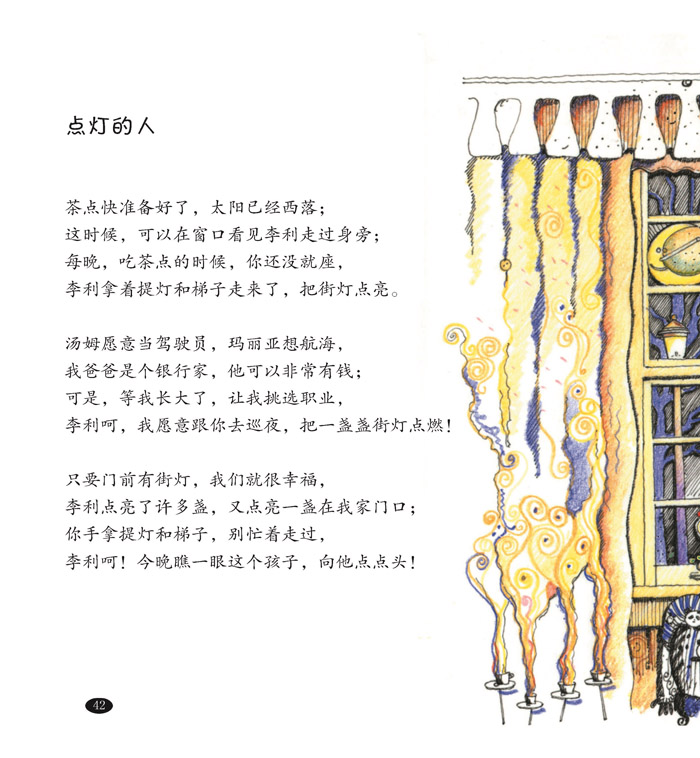 点灯的人
茶点快准备好了，太阳已经西落；
这时候，可以在窗口看见李利走过身旁；
每晚，吃茶点的时候，你还没就座，
李利拿着提灯和梯子走来了，把街灯点亮。
汤姆愿意当驾驶员，玛丽亚想航海，
我爸爸是个银行家，他可以非常有钱；
可是，等我长大了，让我挑选职业，
李利呵，我愿意跟你去巡夜，把一盏盏街灯点燃！
只要门前有街灯，我们就很幸福，
李利点亮了许多盏，又点亮一盏在我家门口；
你手拿提灯和梯子，别忙着走过，
李利呵！今晚瞧一眼这个孩子，向他点点头！
42